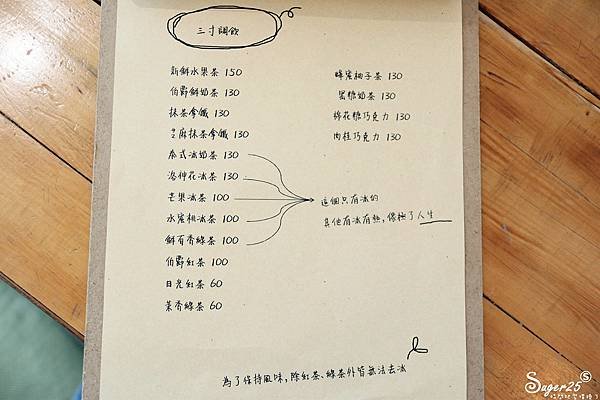 三寸調飲
新鮮水果茶 150
伯爵鮮奶茶 130
抹茶拿鐵 130
芝麻抹茶拿鐵 130
泰式冰奶茶 130
洛神花冰茶 130
芒果冰茶 100
水蜜桃冰茶 100
鮮百香綠茶 100
伯爵紅茶 100
日光紅茶 60
茉香綠茶 60
蜂蜜柚子茶 130
黑糖奶茶 130
棉花糖巧克力 130
肉桂巧克力 130
這個只有冰的
其他有冰有熱，像極了人生
為了保持風味，除紅茶、綠茶外皆無法去冰
Sugar25